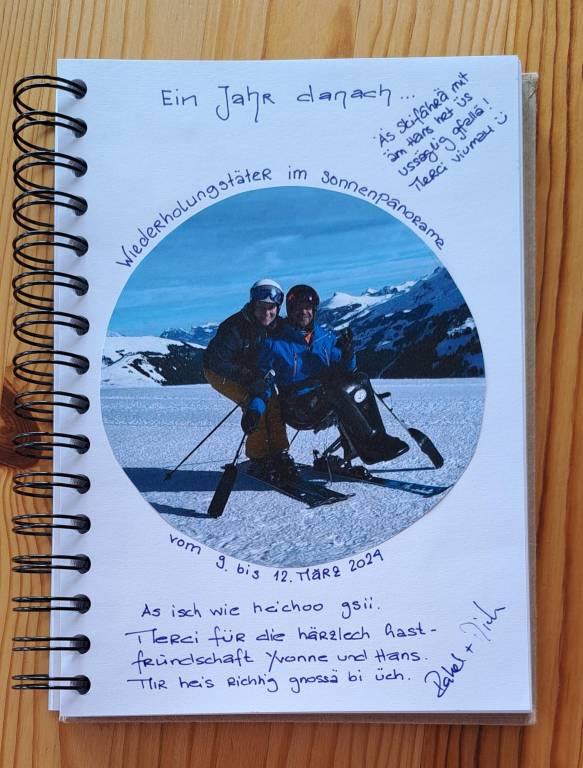 Ein Jahr danach...
Äs Skifahrä mit
äm Hans het üs
ussäglig gfallä!
Merci viumau ☺
Wiederholungstäter im Sonnenpanorama
vom 9. bis 12. März 2024
As isch wie heichoo gsii.
Merci für die härzlech Gast-
fründschaft Yvonne und Hans.
Mir hei's richtig gnossä bi üch.
Rahel +